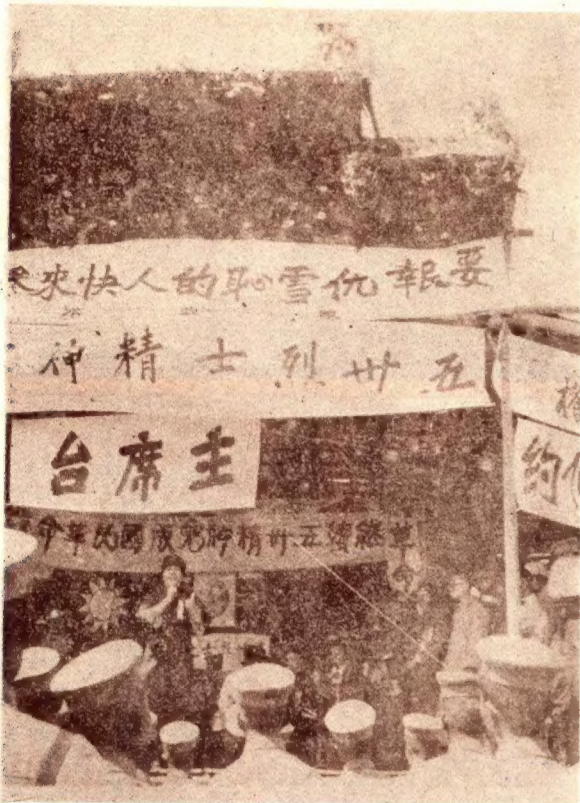 要報仇雪恥的人快來
五卅烈士精神
主席台
繼續五卅精神完成國民革命
約